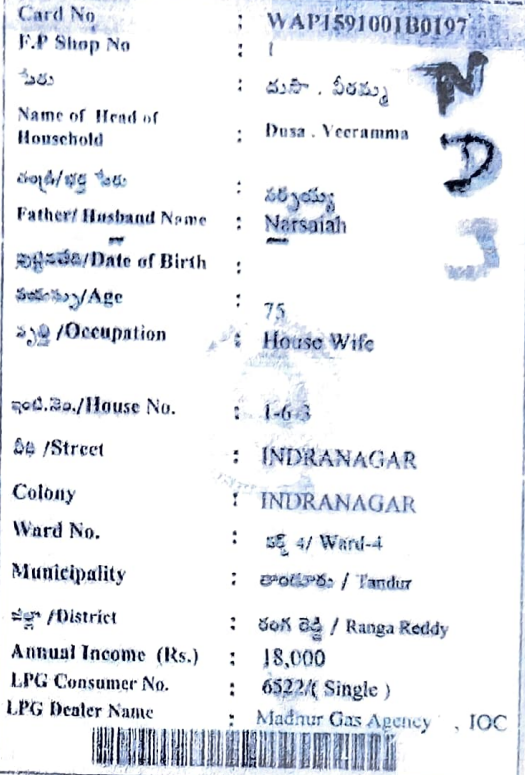 Card No : WAP1591001B0197
F.P Shop No : 1
పేరు : దుసా . వీరమ్మ
Name of Head of
Household : Dusa . Veeramma
తండ్రి/భర్త పేరు : నర్సయ్య
Father/ Husband Name : Narsaiah
పుట్టినతేది/Date of Birth :
వయస్సు/Age : 75
వృత్తి /Occupation : House Wife
ఇంటి.నెం./House No. : 1-6-3
వీధి /Street : INDRANAGAR
Colony : INDRANAGAR
Ward No. : వర్డ్ 4/ Ward-4
Municipality : తాండూరు / Tandur
జిల్లా /District : రంగ రెడ్డి / Ranga Reddy
Annual Income (Rs.) : 18,000
LPG Consumer No. : 6522/( Single )
LPG Dealer Name : Madhur Gas Agency , IOC
N
D